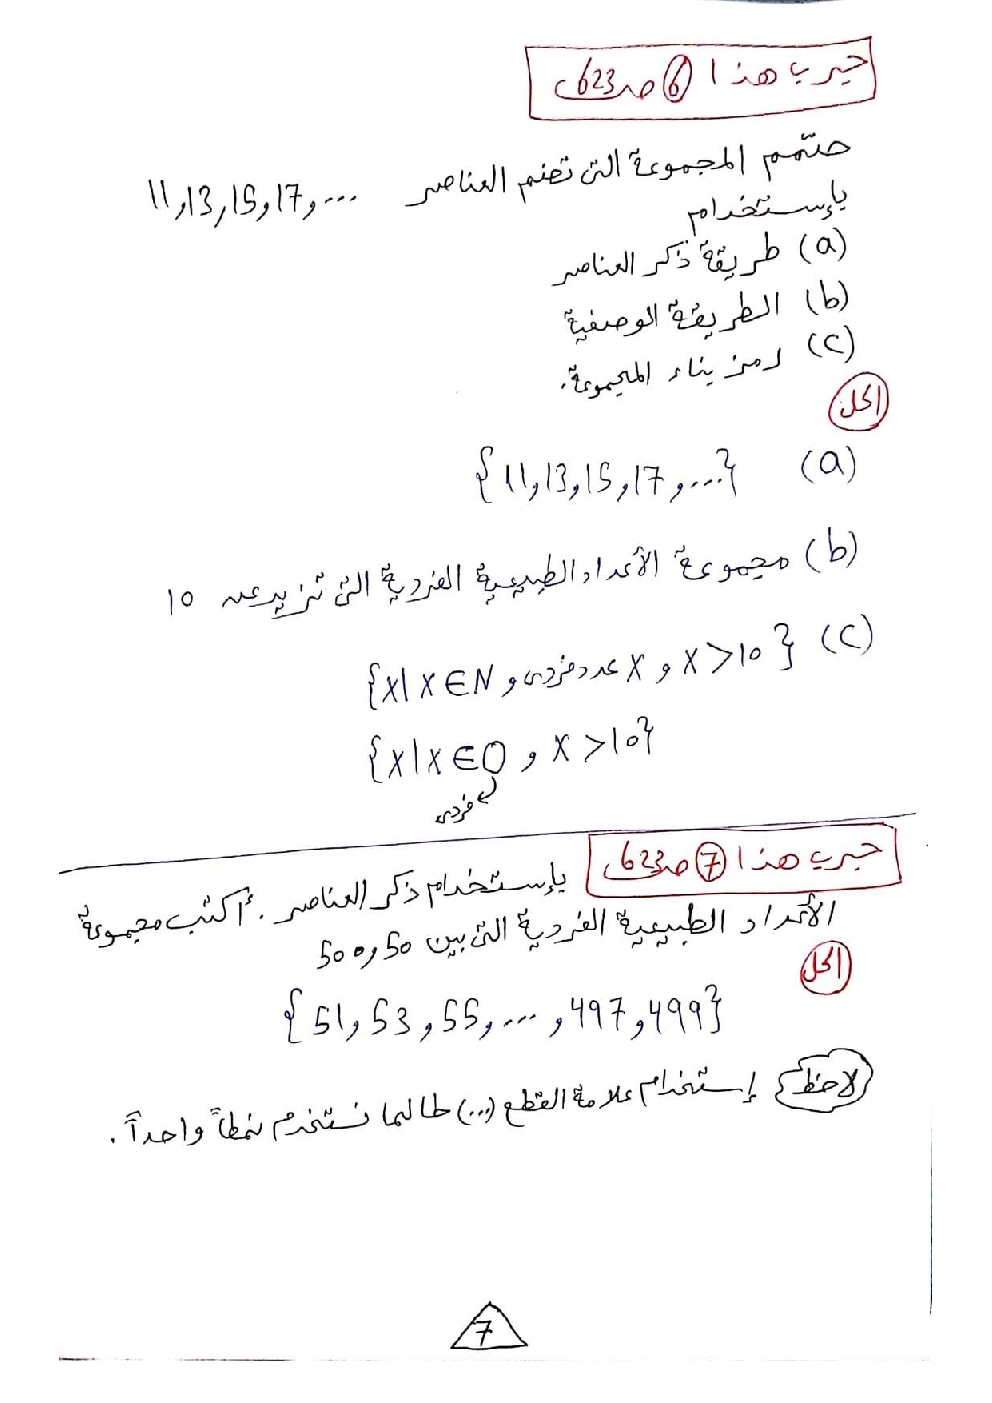 جرب هذا 6 صـ 623
صمّم المجموعة التى تضم العناصر 11, 13, 15, 17, ...
بإستخدام
(a) طريقة ذكر العناصر
(b) الطريقة الوصفية
(c) رمز بناء المجموعة.
الحل
(a) {11, 13, 15, 17, ...}
(b) مجموعة الأعداد الطبيعية الفردية التى تزيد عن 10
(c) {x|x∈N و عدد فردى x و x>10}
{x|x∈O و x>10}
فردى
جرب هذا 7 صـ 623
بإستخدام ذكر العناصر . أكتب مجموعة
الأعداد الطبيعية الفردية التى بين 50 و 500
الحل
{51, 53, 55, ..., 497, 499}
لاحظ إستخدام علامة القطع (...) طالما نستخدم نمطاً واحداً .
7